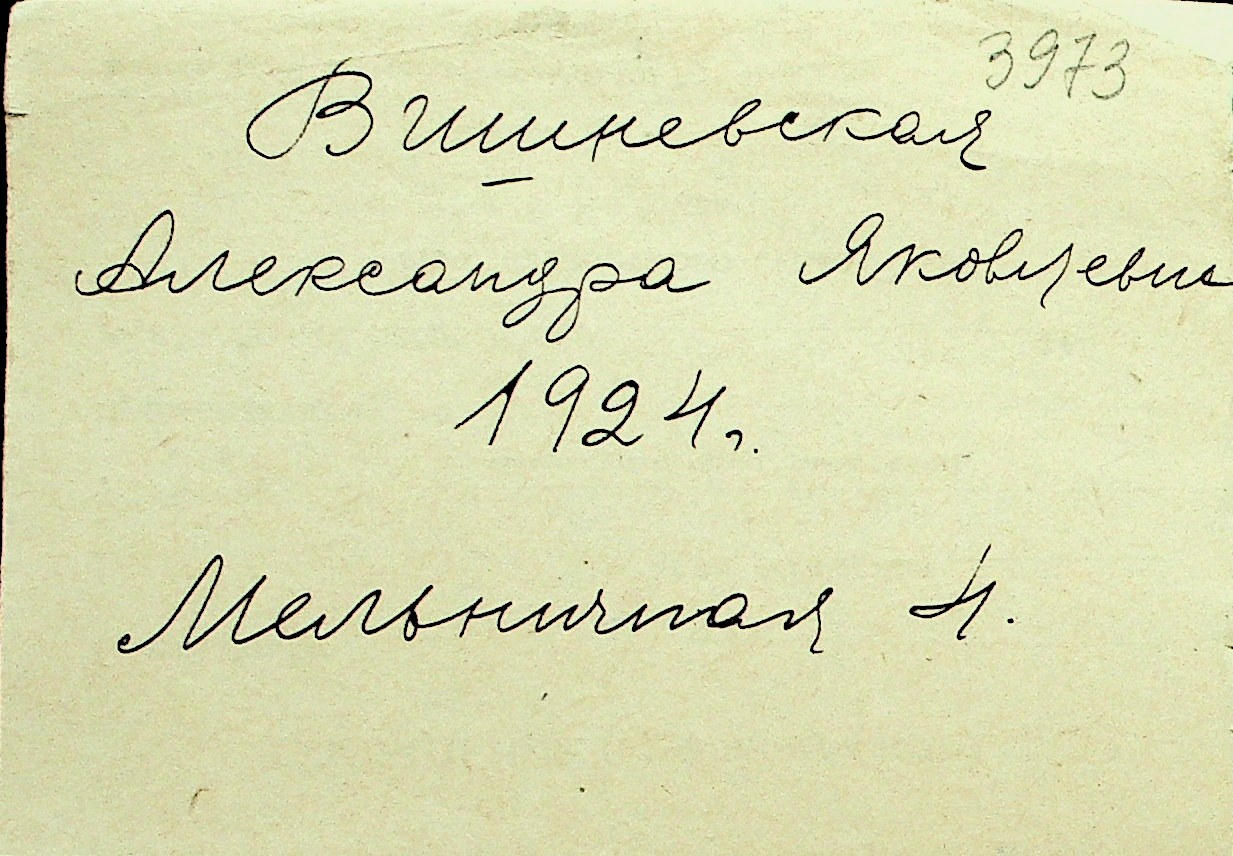 3973
Вишневская
Александра Яковлевна
1924г.
Мельничная 4.